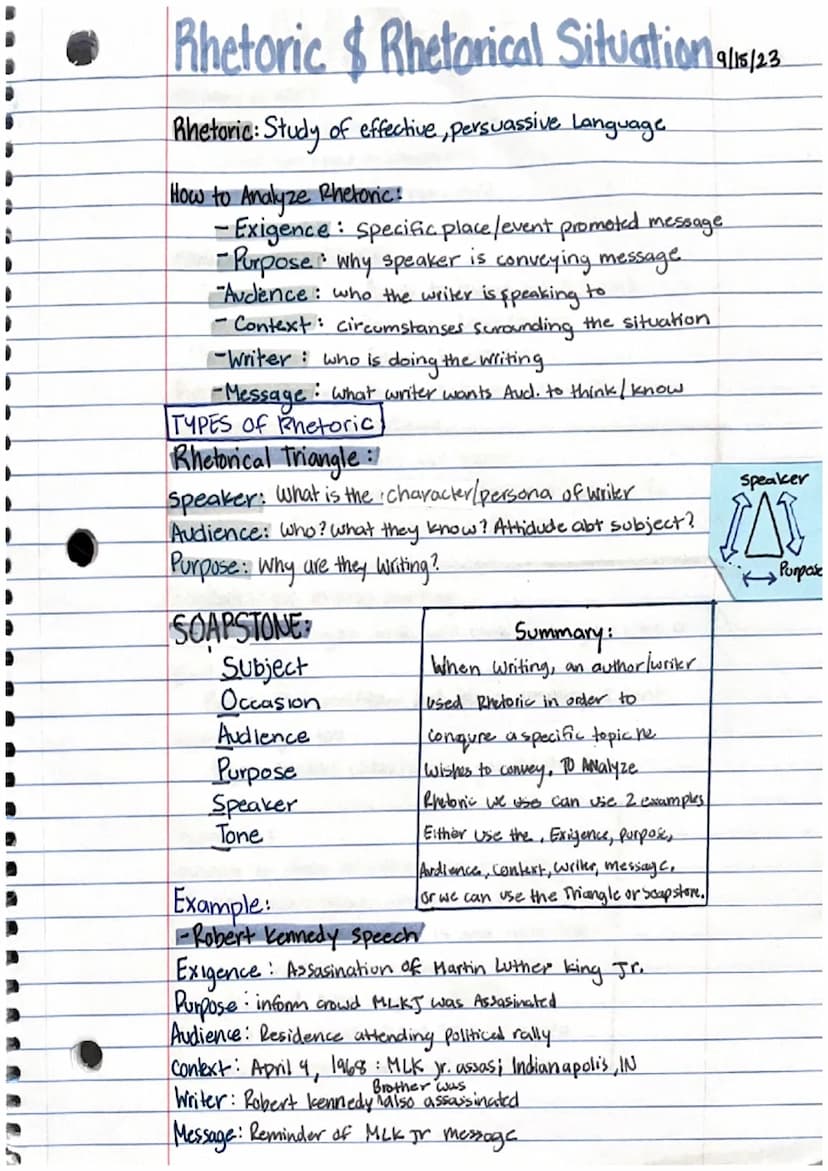 Rhetoric $ Rhetorical Situation 9/15/23
Rhetoric: Study of effective, persuassive Language
How to Analyze Rhetoric:
- Exigence: specific place/event promoted message
- Purpose: why speaker is conveying message
- Audience: who the writer is speaking to
- Context: circumstanses surounding the situation
- Writer: who is doing the writing
- Message: what writer wants Aud. to think/know
TYPES of Rhetoric
Rhetorical Triangle:
Speaker: What is the character/persona of writer
Audience: Who? What they know? Attidude abt subject?
Purpose: Why are they writing?
Speaker
Purpose
SOAPSTONE:
Subject
Occasion
Audience
Purpose
Speaker
Tone
Summary:
When writing, an author/writer
used Rhetoric in order to
conqure a specific topic he
wishes to convey. TO Analyze
Rhetoric we uses can use 2 examples
Either use the, Exigence, purpose,
Audience, context, writer, message,
or we can use the Triangle or soapstone.
Example:
- Robert Kennedy speech
Exigence: Assasination of Martin Luther King Jr.
Purpose: inform crowd MLKJ was Assasinated
Audience: Residence attending political rally
Context: April 4, 1968: MLK jr. assas; Indianapolis, IN
Brother was
Writer: Robert Kennedy also assassinated
Message: Reminder of MLK Jr message